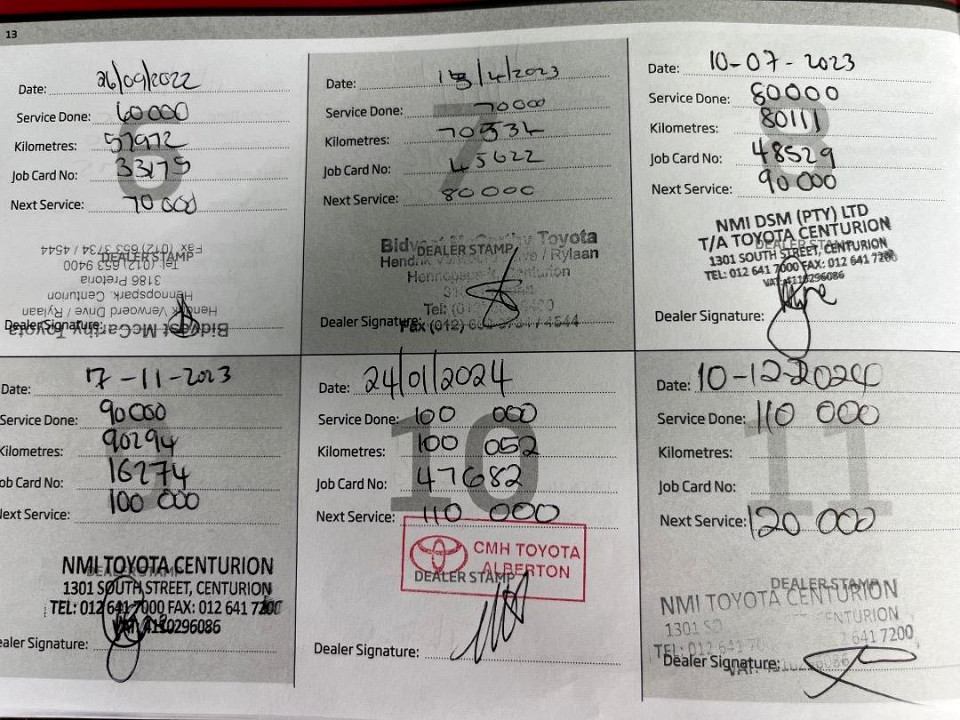 13
Date: 26/09/2022
Service Done: 60 000
Kilometres: 59972
Job Card No: 33175
Next Service: 70 000
6
DEALER STAMP
Bidvest McCarthy Toyota
Hendrik Verwoerd Drive / Rylaan
Hennopspark, Centurion
3186 Pretoria
Tel: (012) 653 9400
Fax (012) 653 3734 / 4544
Dealer Signature:
Date: /4/2023
Service Done: 70000
Kilometres: 70534
Job Card No: 45622
Next Service: 80000
7
DEALER STAMP
Bidvest McCarthy Toyota
Hendrik Verwoerd Drive / Rylaan
Hennopspark, Centurion
Tel: (012)
Fax (012) 653 3734 / 4544
Dealer Signature:
Date: 10-07-2023
Service Done: 80000
Kilometres: 80111
Job Card No: 48529
Next Service: 90 000
8
DEALER STAMP
NMI DSM (PTY) LTD
T/A TOYOTA CENTURION
1301 SOUTH STREET, CENTURION
TEL: 012 641 7000 FAX: 012 641 7200
VAT: 4110296086
Dealer Signature:
Date: 17-11-2023
Service Done: 90000
Kilometres: 90294
Job Card No: 16274
Next Service: 100 000
DEALER STAMP
NMI TOYOTA CENTURION
1301 SOUTH STREET, CENTURION
TEL: 012 641 7000 FAX: 012 641 7200
VAT: 4110296086
Dealer Signature:
Date: 24/01/2024
Service Done: 100 000
Kilometres: 100 052
Job Card No: 47682
Next Service: 110 000
10
CMH TOYOTA
ALBERTON
DEALER STAMP
Dealer Signature:
Date: 10-12-2024
Service Done: 110 000
Kilometres:
Job Card No:
Next Service: 120 000
11
DEALER STAMP
NMI TOYOTA CENTURION
1301 CENTURION
TEL: 012 641 70 2 641 7200
Dealer Signature: